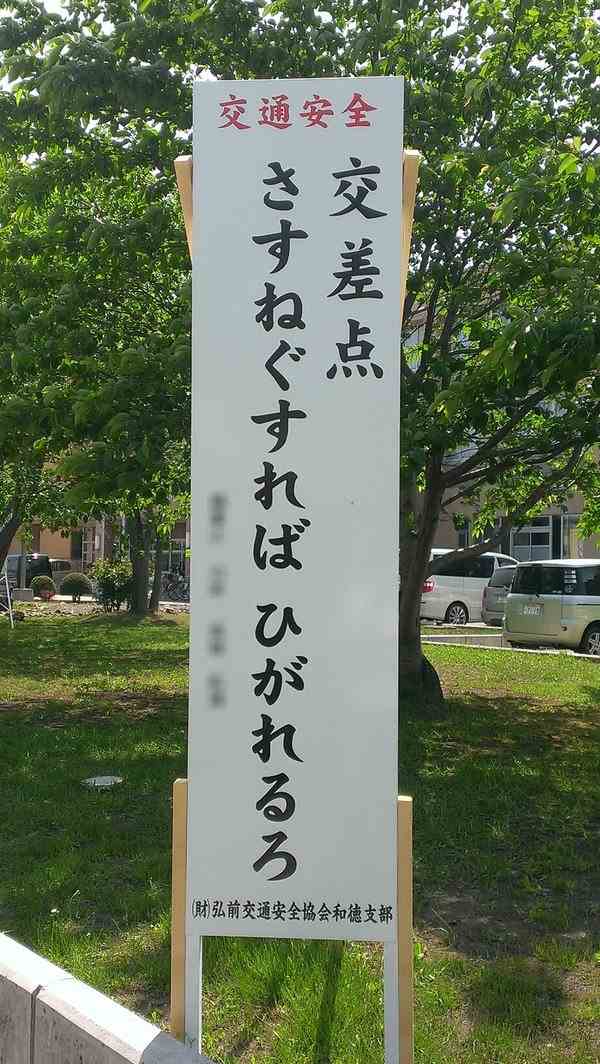 交通安全
交差点
さすねぐすれば ひがれるろ
(財)弘前交通安全協会和徳支部